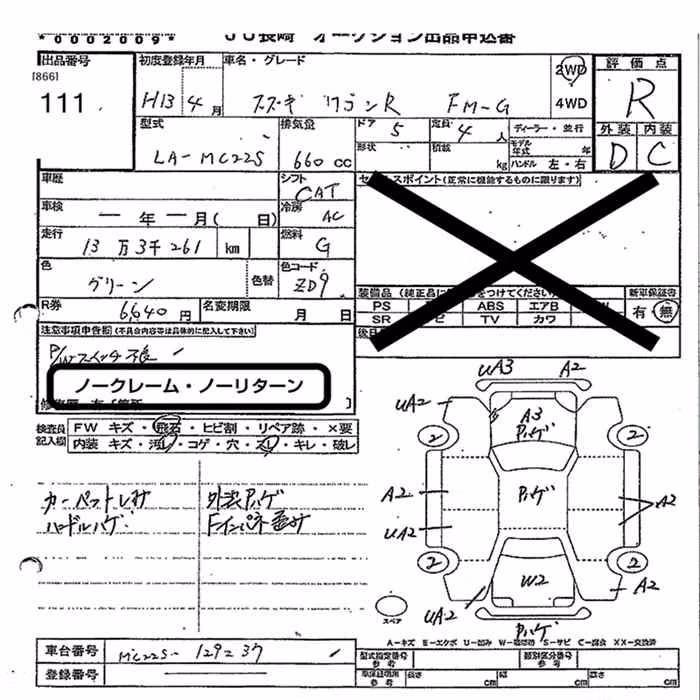 *0002009*
JU長崎 オークション出品申込書
出品番号
[866]
111
初度登録年月
H13年4月
車名・グレード
スズキ ワゴンR FM-G
2WD
4WD
評価点
R
外装 内装
D C
型式
LA-MC22S
排気量
660 CC
ドア 5
定員 4人
ディーラー・並行
形状
積載 kg
モデル年式 年
ハンドル 左・右
車歴
シフト
CAT
セールスポイント(正常に機能するものに限ります)
車検
ー年ー月( 日)
冷房
AC
走行
13万3千261 km
燃料
G
色
グリーン
色替
色コード
ZD9
R券
6,640円
名変期限
月 日
PS
ABS
エアB
SR
TV
カワ
新車保証書
有・無
注意事項申告欄(不具合内容等は具体的に記入して下さい)
P/Wスイッチ不良
ノークレーム・ノーリターン
検査員記入欄
FW キズ・飛石・ヒビ割・リペア跡・×要
内装 キズ・汚レ・コゲ・穴・スレ・キレ・破レ
カーペットレサ
外装Pハゲ
ハンドルハゲ
Fインパネ歪み
UA3 A2
UA2
A3
Pハゲ
2 2
A2
Pハゲ
A2
UA2
2 2
W2
UA2
A2
Pハゲ
スペア
A-キズ E-エクボ U-凹み W-補修跡 S-サビ C-腐食 XX-交換済
車台番号
MC22S-129237
登録番号
型式指定番号
参考
類別区分番号
参考
車庫証明用
参考
長さ cm
幅 cm
高さ cm